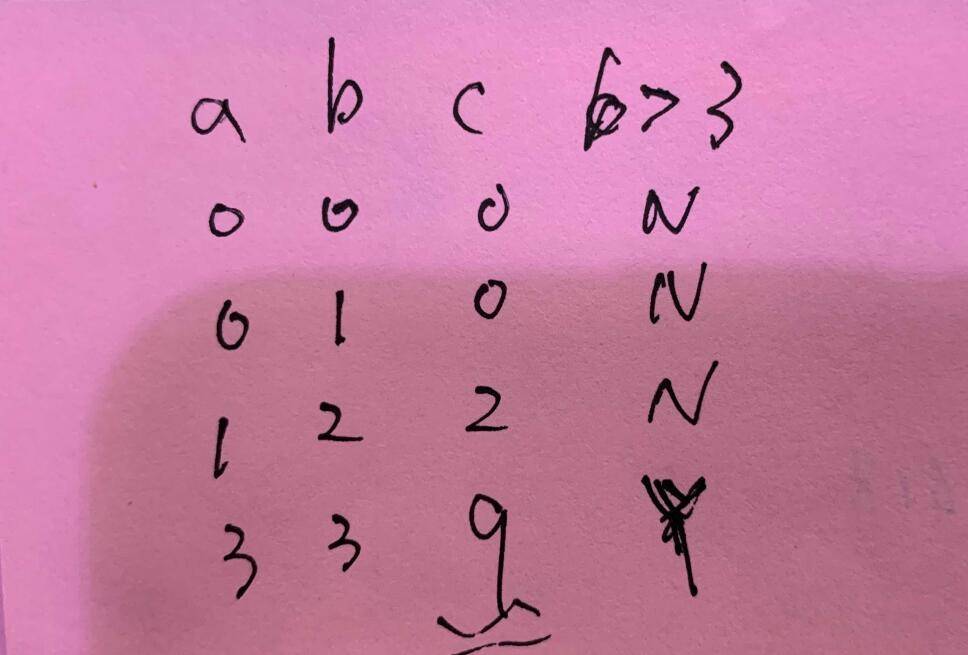 a b c b>3
0 0 0 N
0 1 0 N
1 2 2 N
3 3 9 Y